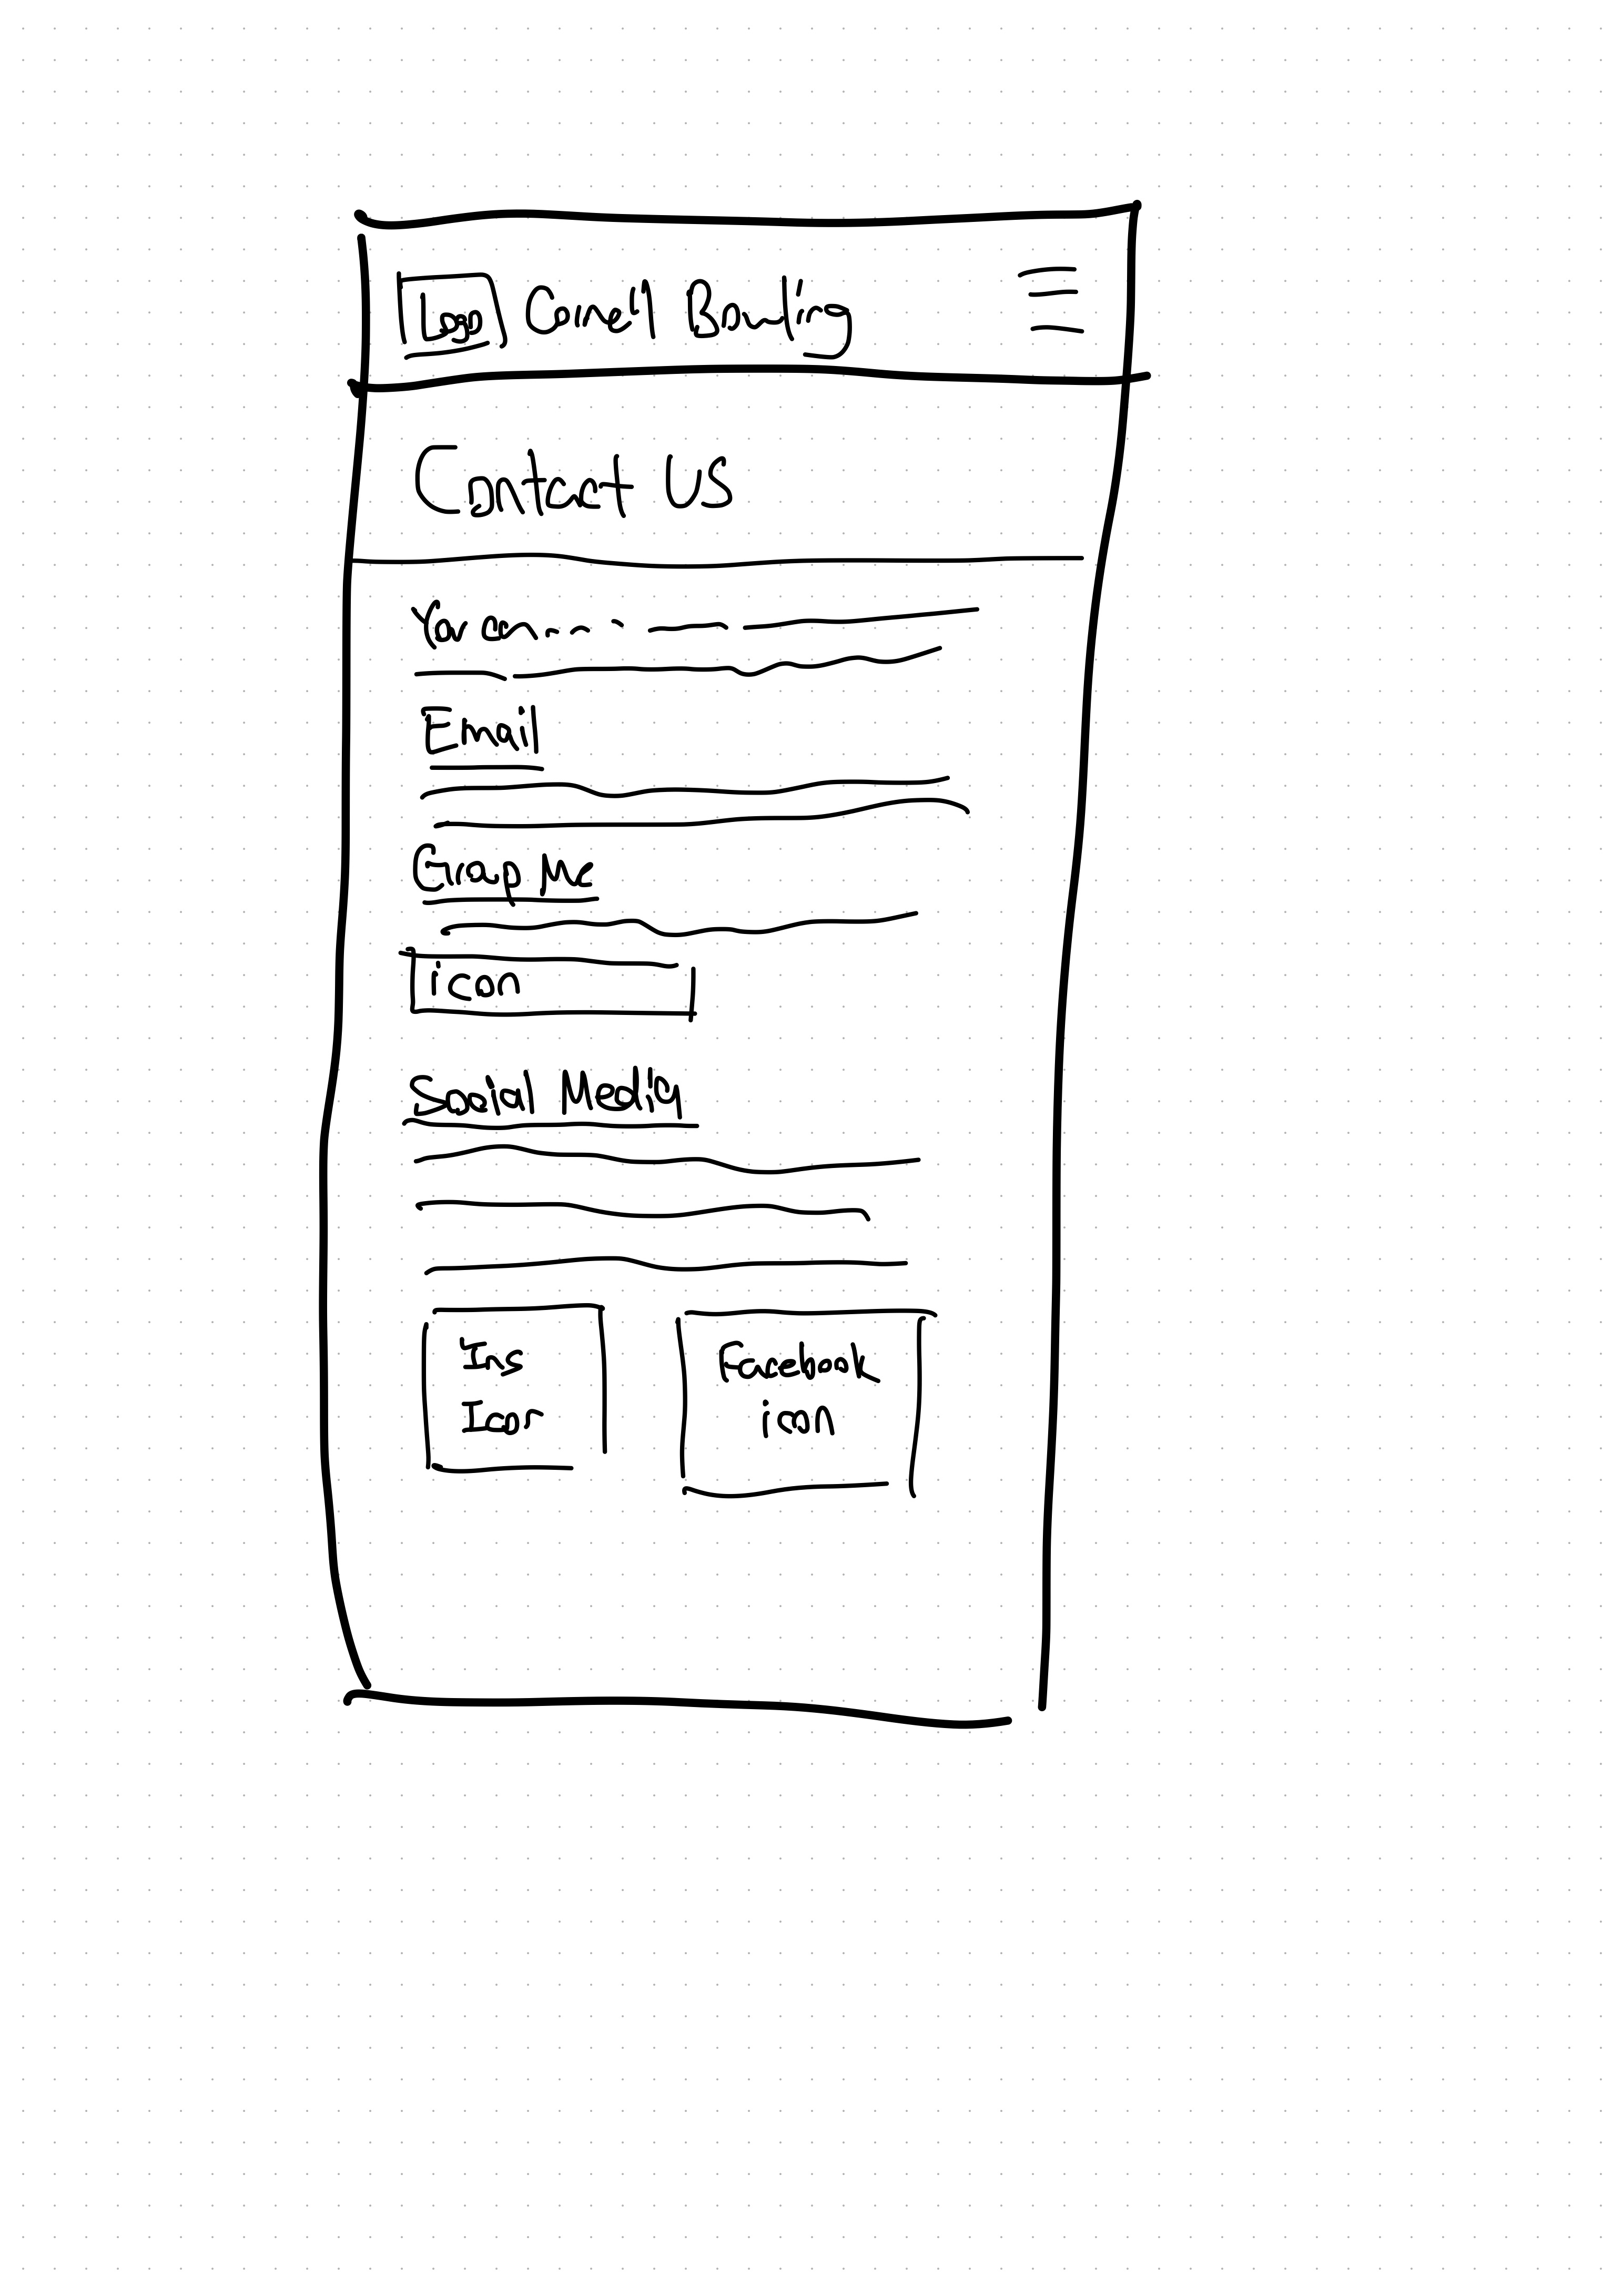 Logo Cornell Bowling
Contact US
You can...
Email
Group Me
icon
Social Media
Ins
Icon
Facebook
icon